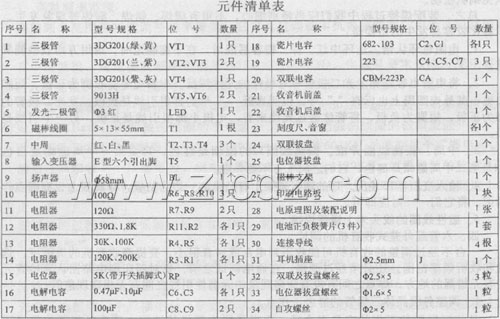 元件清单表
序号 名称 型号规格 位号 数量 序号 名称 型号规格 位号 数量
1 三极管 3DG201(绿、黄) VT1 1只 18 瓷片电容 682、103 C2、C1 各1只
2 三极管 3DG201(兰、紫) VT2、VT3 2只 19 瓷片电容 223 C4、C5、C7 3只
3 三极管 3DG201(紫、灰) VT4 1只 20 双联电容 CBM-223P CA 1个
4 三极管 9013H VT5、VT6 2只 21 收音机前盖 1个
5 发光二极管 Φ3红 LED 1只 22 收音机后盖 1个
6 磁棒线圈 5×13×55mm T1 1根 23 刻度尺、音窗 各1个
7 中周 红、白、黑 T2、T3、T4 3个 24 双联拨盘 1个
8 输入变压器 E型六个引出脚 T5 1个 25 电位器拨盘 1个
9 扬声器 Φ58mm BL 1个 26 磁棒支架 1个
10 电阻器 100Ω R6、R8、R10 3只 27 印刷电路板 1块
11 电阻器 120Ω R7、R9 2只 28 电原理图及装配说明 1张
12 电阻器 330Ω、1.8K R11、R2 各1只 29 电池正负极簧片(3件) 1套
13 电阻器 30K、100K R4、R5 各1只 30 连接导线 4根
14 电阻器 120K、200K R3、R1 各1只 31 耳机插座 Φ2.5mm J 1个
15 电位器 5K(带开关插脚式) RP 1个 32 双联及拨盘螺丝 Φ2.5×5 3粒
16 电解电容 0.47μF、10μF C6、C3 各1只 33 电位器拨盘螺丝 Φ1.6×5 1粒
17 电解电容 100μF C8、C9 2只 34 自攻螺丝 Φ2×5 1粒